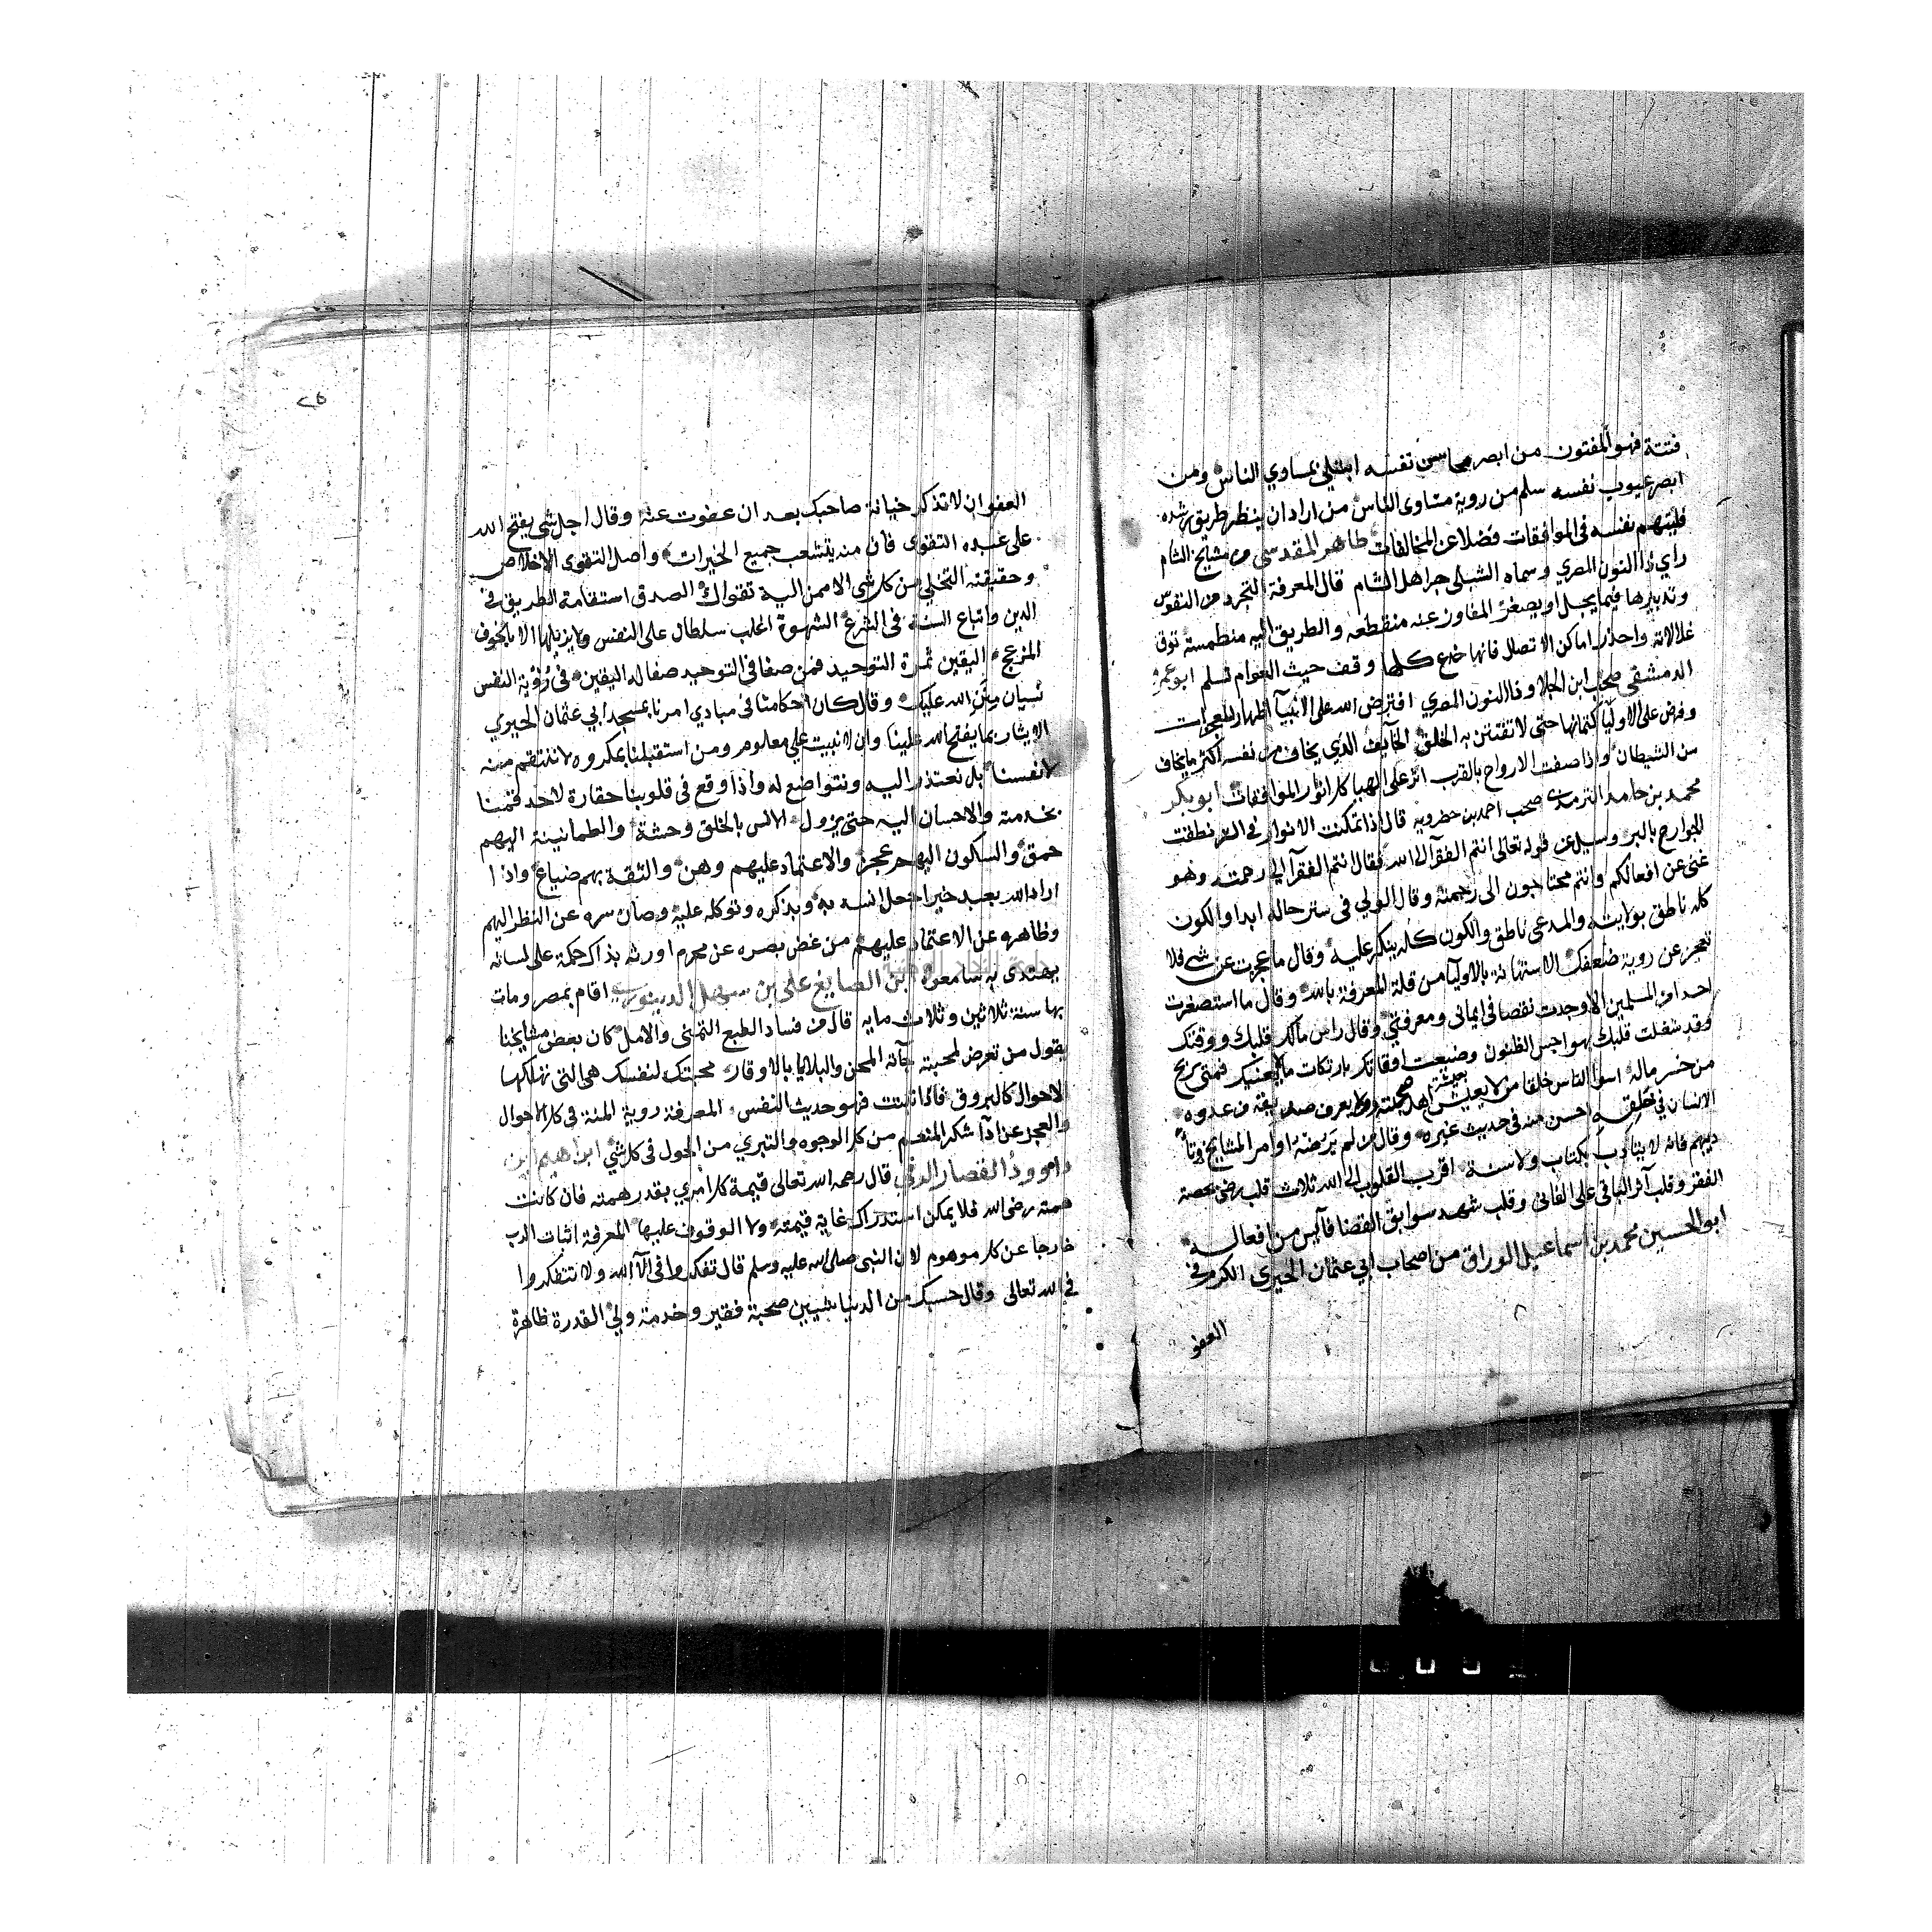 فتنة فهو المفتون من ابصر محاسن نفسه ابتلي بمساوي الناس ومن
ابصر عيوب نفسه سلم من روية مساوى الناس من اراد ان ينظر طريق رشده
فليتهم نفسه فى الموافقات فضلا عن المخالفات طاهر المقدسي من مشايخ الشام
راي ذا النون المصري وسماه الشبلي حبر اهل الشام قال المعرفة التجرد من النفوس
وتدبيرها فيما يجل او يصغر المفاوز عنه منقطعه والطريق اليه منطمسة توق
علالاته واحذر اماكن الاتصال فانها خدع كلها وقف حيث العوام تسلم ابو عمر
الدمشقي صحب ابن الجلا وذا النون المصري افترض الله على الانبيآ اظهار المعجزات
وفرض على الاوليآ كتمانها حتى لا تفتتن به الخلق الخآيف الذي يخاف من نفسه اكثر ما يخاف
من الشيطان واذا صفت الارواح بالقرب اثر على الهياكل انوار الموافقات ابو بكر
محمد بن حامد الترمدي صحب احمد بن خضرويه قال اذا تمكنت الانوار في السر نطقت
الجوارح بالبر وسيل عن قوله تعالى انتم الفقرآ الى الله فقال انتم الفقرآ الى رحمته وهو
غنى عن افعالكم وانتم محتاجون الى رحمته وقال الولي فى ستر حاله ابدا والكون
كله ناطق بولايته والمدعى ناطق والكون كله ينكر عليه وقال ما عجزت عن شي فلا
تعجز عن روية ضعفك الاستهانة بالاوليآ من قلة المعرفة بالله وقال ما استصغرت
احدا من المسلمين الا وجدت نقصا فى ايمانى ومعرفتي وقال راس مالك قلبك ووقتك
وقد شغلت قلبك بهواجس الظنون وضيعت اوقاتك بارتكاب ما لا يعنيك فمتى يربح
من خسر ماله اسوا الناس خلقا من لا يعيش بعيشته اهل صحبته ولا يعرف صديقه من عدوه
الانسان في خلقه احسن منه فى حديث غيره وقال من لم يرضه اوامر المشايخ وتأ
ديبهم فانه لا يتأدب بكتاب ولا سنة اقرب القلوب الى الله ثلاث قلب رضى بصحبة
الفقر وقلب آثر الباقى على الفانى وقلب شهد سوابق القضا فآيس من افعاله
ابو الحسين محمد بن اسماعيل الوراق من اصحاب ابي عثمان الحيري الكرم في
العفو
٢٥
العفو ان لا تذكر خيانة صاحبك بعد ان عفوت عنه وقال اجل شي يفتح الله
على عبده التقوى فان منه يتشعب جميع الخيرات واصل التقوى الاخلاص
وحقيقته التخلي من كل شي الا ممن اليه تقواك الصدق استقامة الطريق في
الدين واتباع السنة فى الشرع الشهوة اغلب سلطان على النفس ولا يزيلها الا بالخوف
المزعج اليقين ثمرة التوحيد فمن صفا فى التوحيد صفا له اليقين فى رؤية النفس
نسيان منن الله عليك وقال كان احكامنا فى مبادي امرنا بمسجد ابي عثمان الحيري
الايثار بما يفتح الله علينا وان لا نبيت على معلوم ومن استقبلنا بمكروه لا ننتقم منه
لانفسنا بل نعتذر اليه ونتواضع له واذا وقع فى قلوبنا حقارة لاحد قمنا
بخدمته والاحسان اليه حتى يزول الانس بالخلق وحشة والطمانينة اليهم
حمق والسكون اليهم عجز والاعتماد عليهم وهن والثقة بهم ضياع واذا
اراد الله بعبد خيرا جعل انسه به وبذكره وتوكله عليه وصان سره عن النظر اليهم
وظاهره عن الاعتماد عليهم من غض بصره عن محرم اورثه بذاك حكمة على لسانه
يهتدى به سامعوه ابن الصايغ على بن سهل الدينوري اقام بمصر ومات
بها سنة ثلاثين وثلاث مايه قال من فساد الطبع التمنى والامل كان بعض مشايخنا
يقول من تعرض لمحبته جآته المحن والبلايا بالاوقار محبتك لنفسك هى التى تهلكها
الاحوال كالبروق فاذا ثبتت فهو حديث النفس المعرفة روية المنة فى كل الاحوال
والعجز عن ادآ شكر المنعم من كل الوجوه والتبري من الحول فى كل شي ابراهيم ابن
داوود القصار الرقي قال رحمه الله تعالى قيمة كل امري بقدر همته فان كانت
همته رضى الله فلا يمكن استدراك غاية قيمته ولا الوقوف عليها المعرفة اثبات الرب
خارجا عن كل موهوم لان النبى صلى الله عليه وسلم قال تفكروا فى الآ الله ولا تتفكروا
في الله تعالى وقال حسبك من الدنيا شيين صحبة فقير وخدمة ولي القدرة ظاهرة